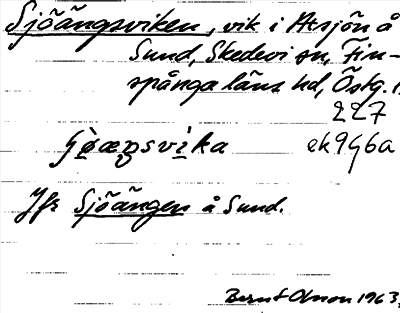 Sjöängsviken, vik i Mtsjön å
Sund, Skedevi sn, Fin-
spånga läns hd, Östg.
227
ek 9g6a
Jfr Sjöängen å Sund.
Bernt Olsson 1963.